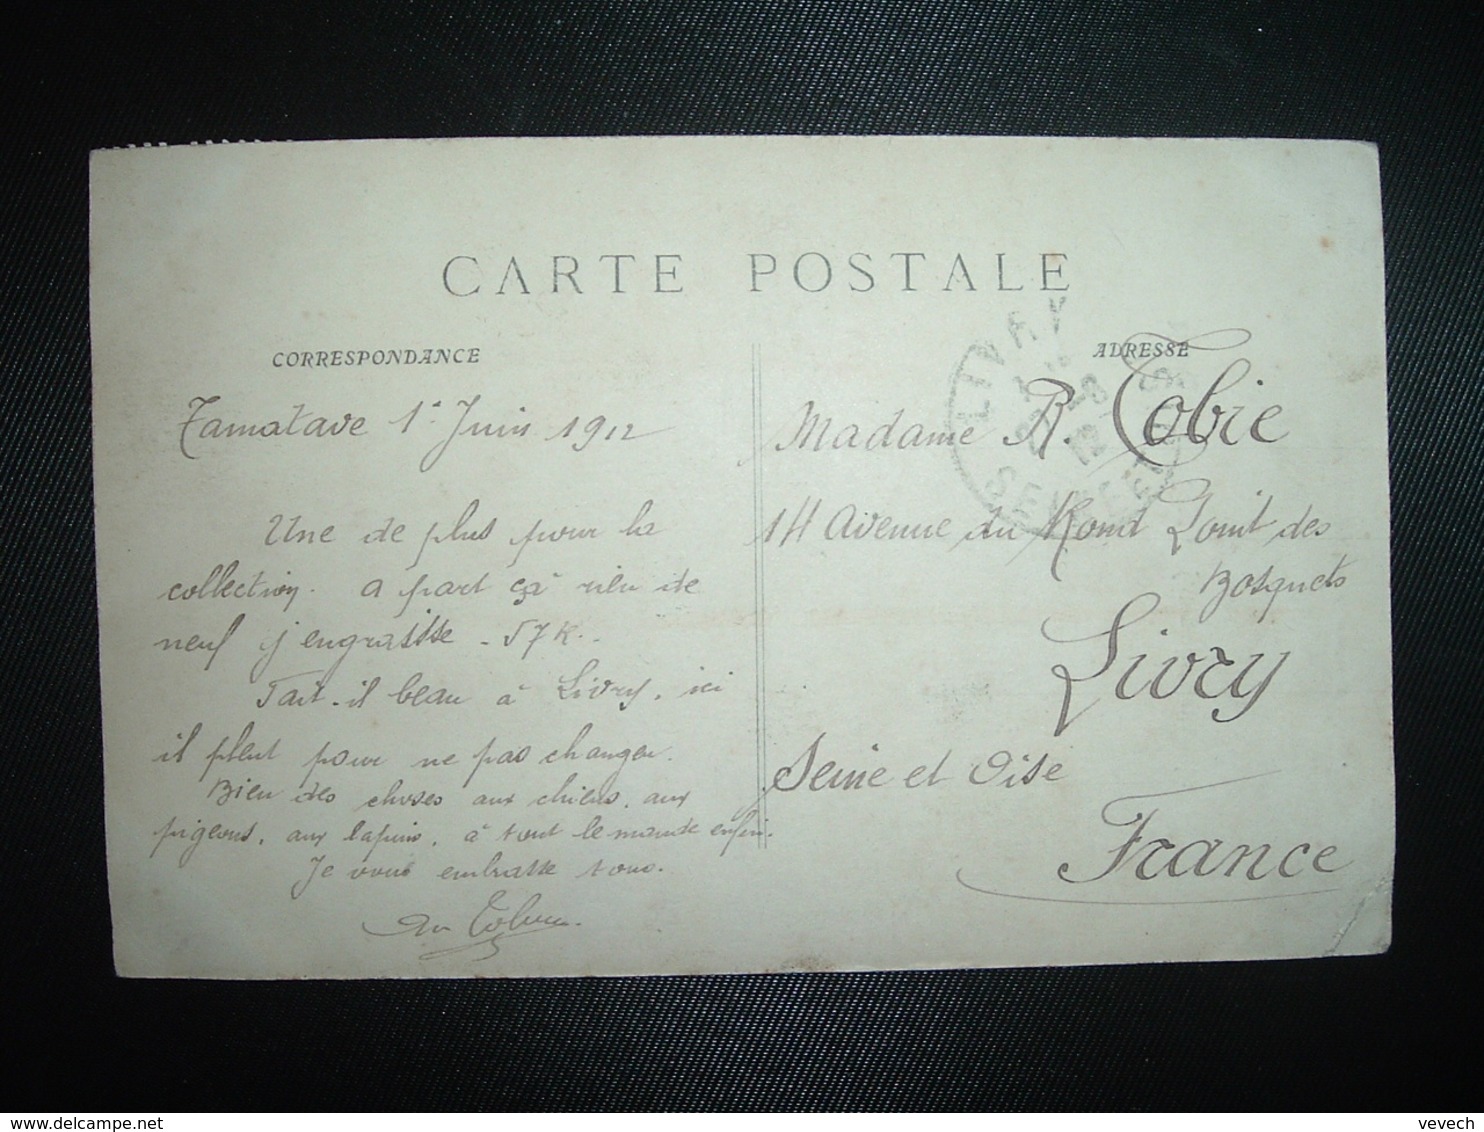 CARTE POSTALE
CORRESPONDANCE
Tamatave 1er Juin 1912
Une de plus pour la
collection. a part ça rien de
neuf j'engraisse - 57 K.
Fait-il beau à Livry, ici
il pleut pour ne pas changer.
Bien des choses aux chiens, aux
pigeons, aux lapins, à tout le monde enfin.
Je vous embrasse tous.
ADRESSE
Madame R. Tobie
14 Avenue du Rond Point des
Bosquets
Livry
Seine et Oise
France
LIVRY
delcampe.net
vevech